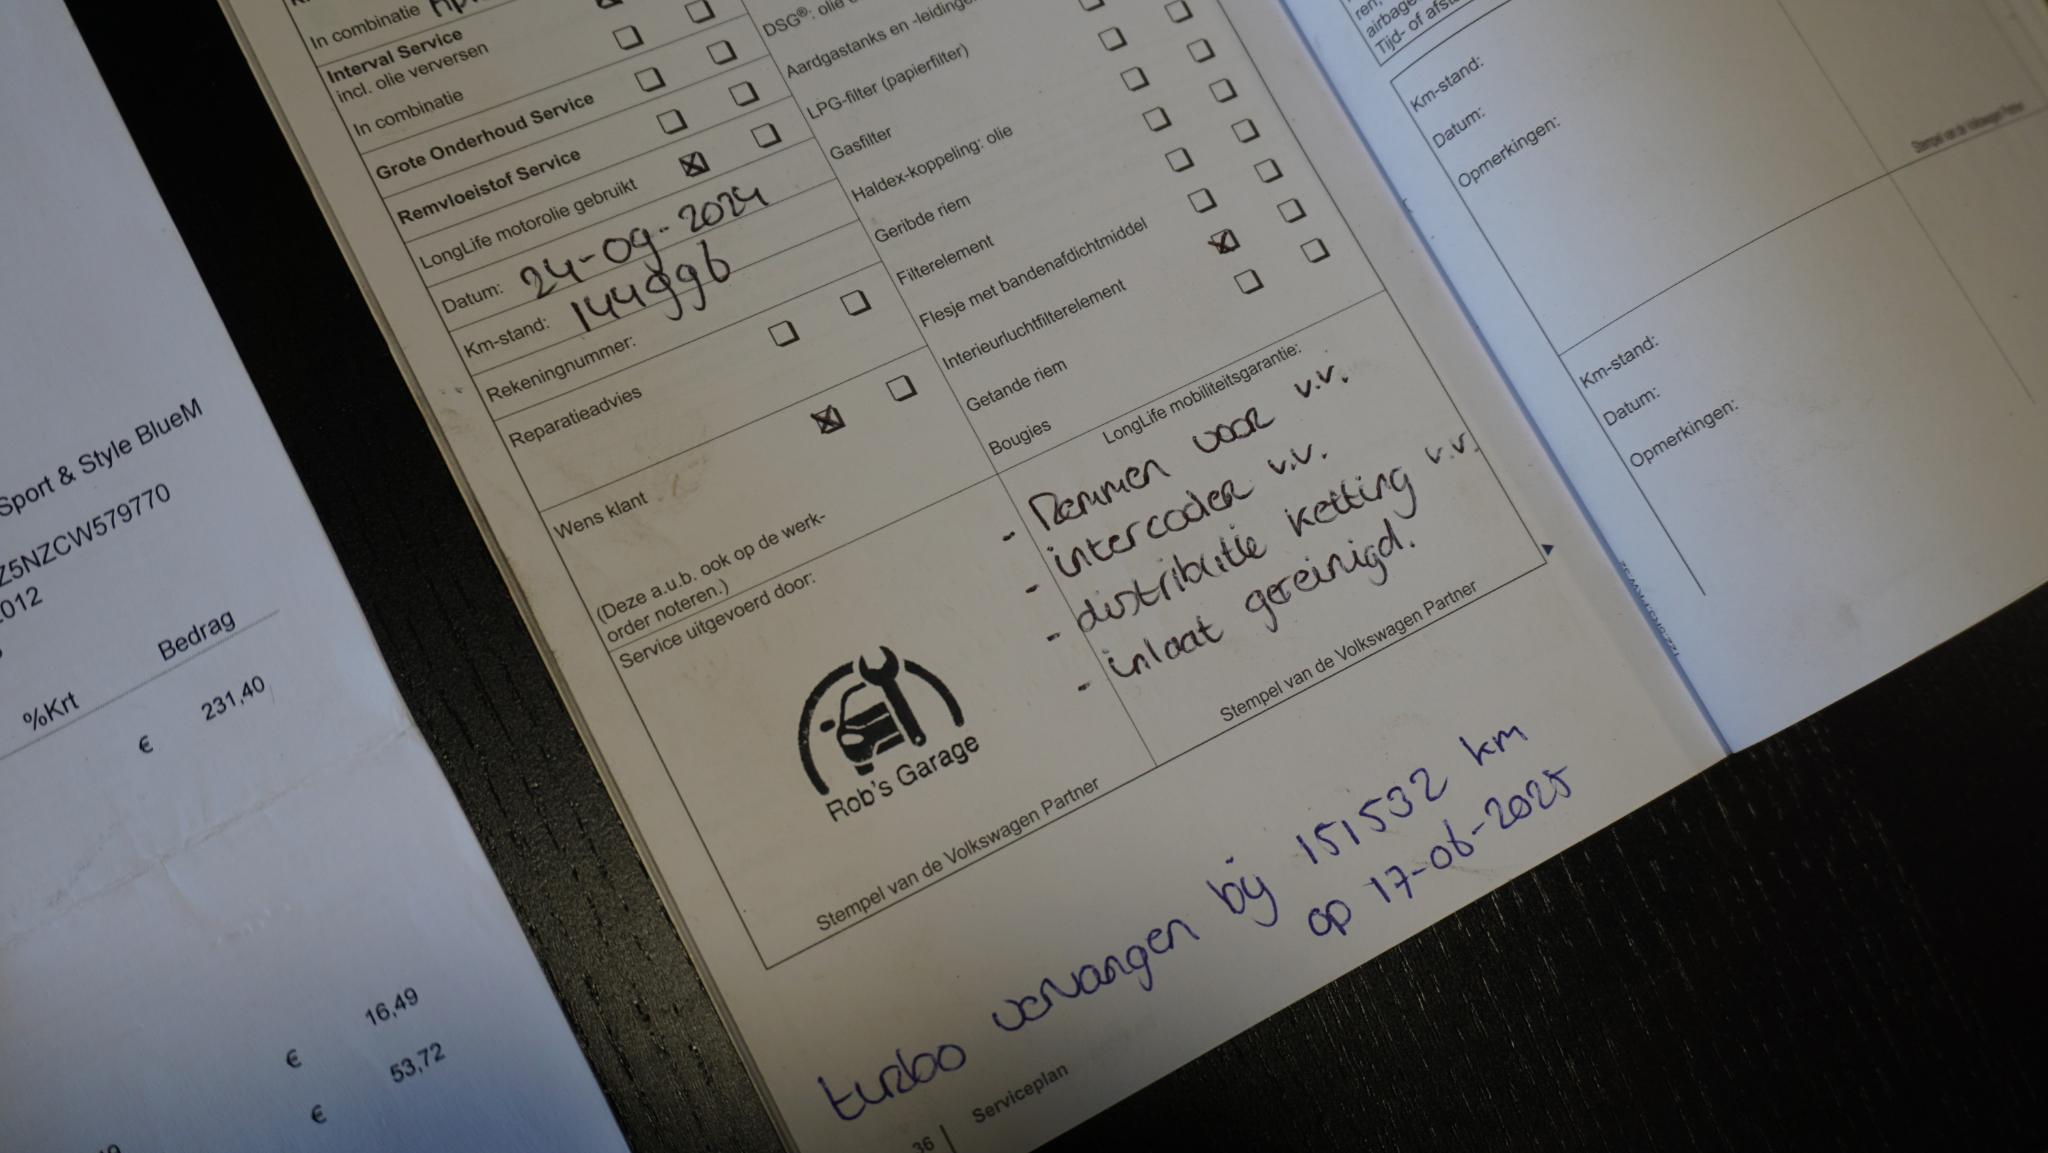 Sport & Style BlueM
Z5NZCW579770
2012
%Krt Bedrag
€ 231,40
€ 16,49
€ 53,72
In combinatie
Interval Service
incl. olie verversen
In combinatie
Grote Onderhoud Service
Remvloeistof Service
LongLife motorolie gebruikt
Datum: 24-09-2024
Km-stand: 144996
Rekeningnummer:
Reparatieadvies
Wens klant
(Deze a.u.b. ook op de werk-
order noteren.)
Service uitgevoerd door:
Rob's Garage
Stempel van de Volkswagen Partner
DSG®: olie
Aardgastanks en -leidingen
LPG-filter (papierfilter)
Gasfilter
Haldex-koppeling: olie
Geribde riem
Filterelement
Flesje met bandenafdichtmiddel
Interieurluchtfilterelement
Getande riem
Bougies
LongLife mobiliteitsgarantie:
- Remmen voor v.v.
- intercoder v.v.
- distributie ketting v.v.
- inlaat gereinigd.
Stempel van de Volkswagen Partner
turbo vervangen bij 151532 km
op 17-06-2025
36 | Serviceplan
airbage
Tijd- of afst
Km-stand:
Datum:
Opmerkingen:
Stempel van de Volkswagen Partner
Km-stand:
Datum:
Opmerkingen: